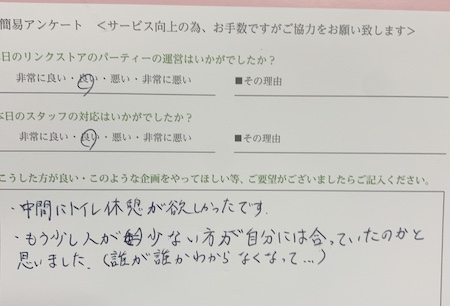 簡易アンケート <サービス向上の為、お手数ですがご協力をお願い致します>
本日のリンクストアのパーティーの運営はいかがでしたか?
非常に良い・良い・悪い・非常に悪い ■その理由
本日のスタッフの対応はいかがでしたか?
非常に良い・良い・悪い・非常に悪い ■その理由
こうした方が良い・このような企画をやってほしい等、ご要望がございましたらご記入ください。
・中間にトイレ休憩が欲しかったです.
・もう少し人が少ない方が自分には合っていたのかと
思いました.(誰が誰かわからなくなって...)